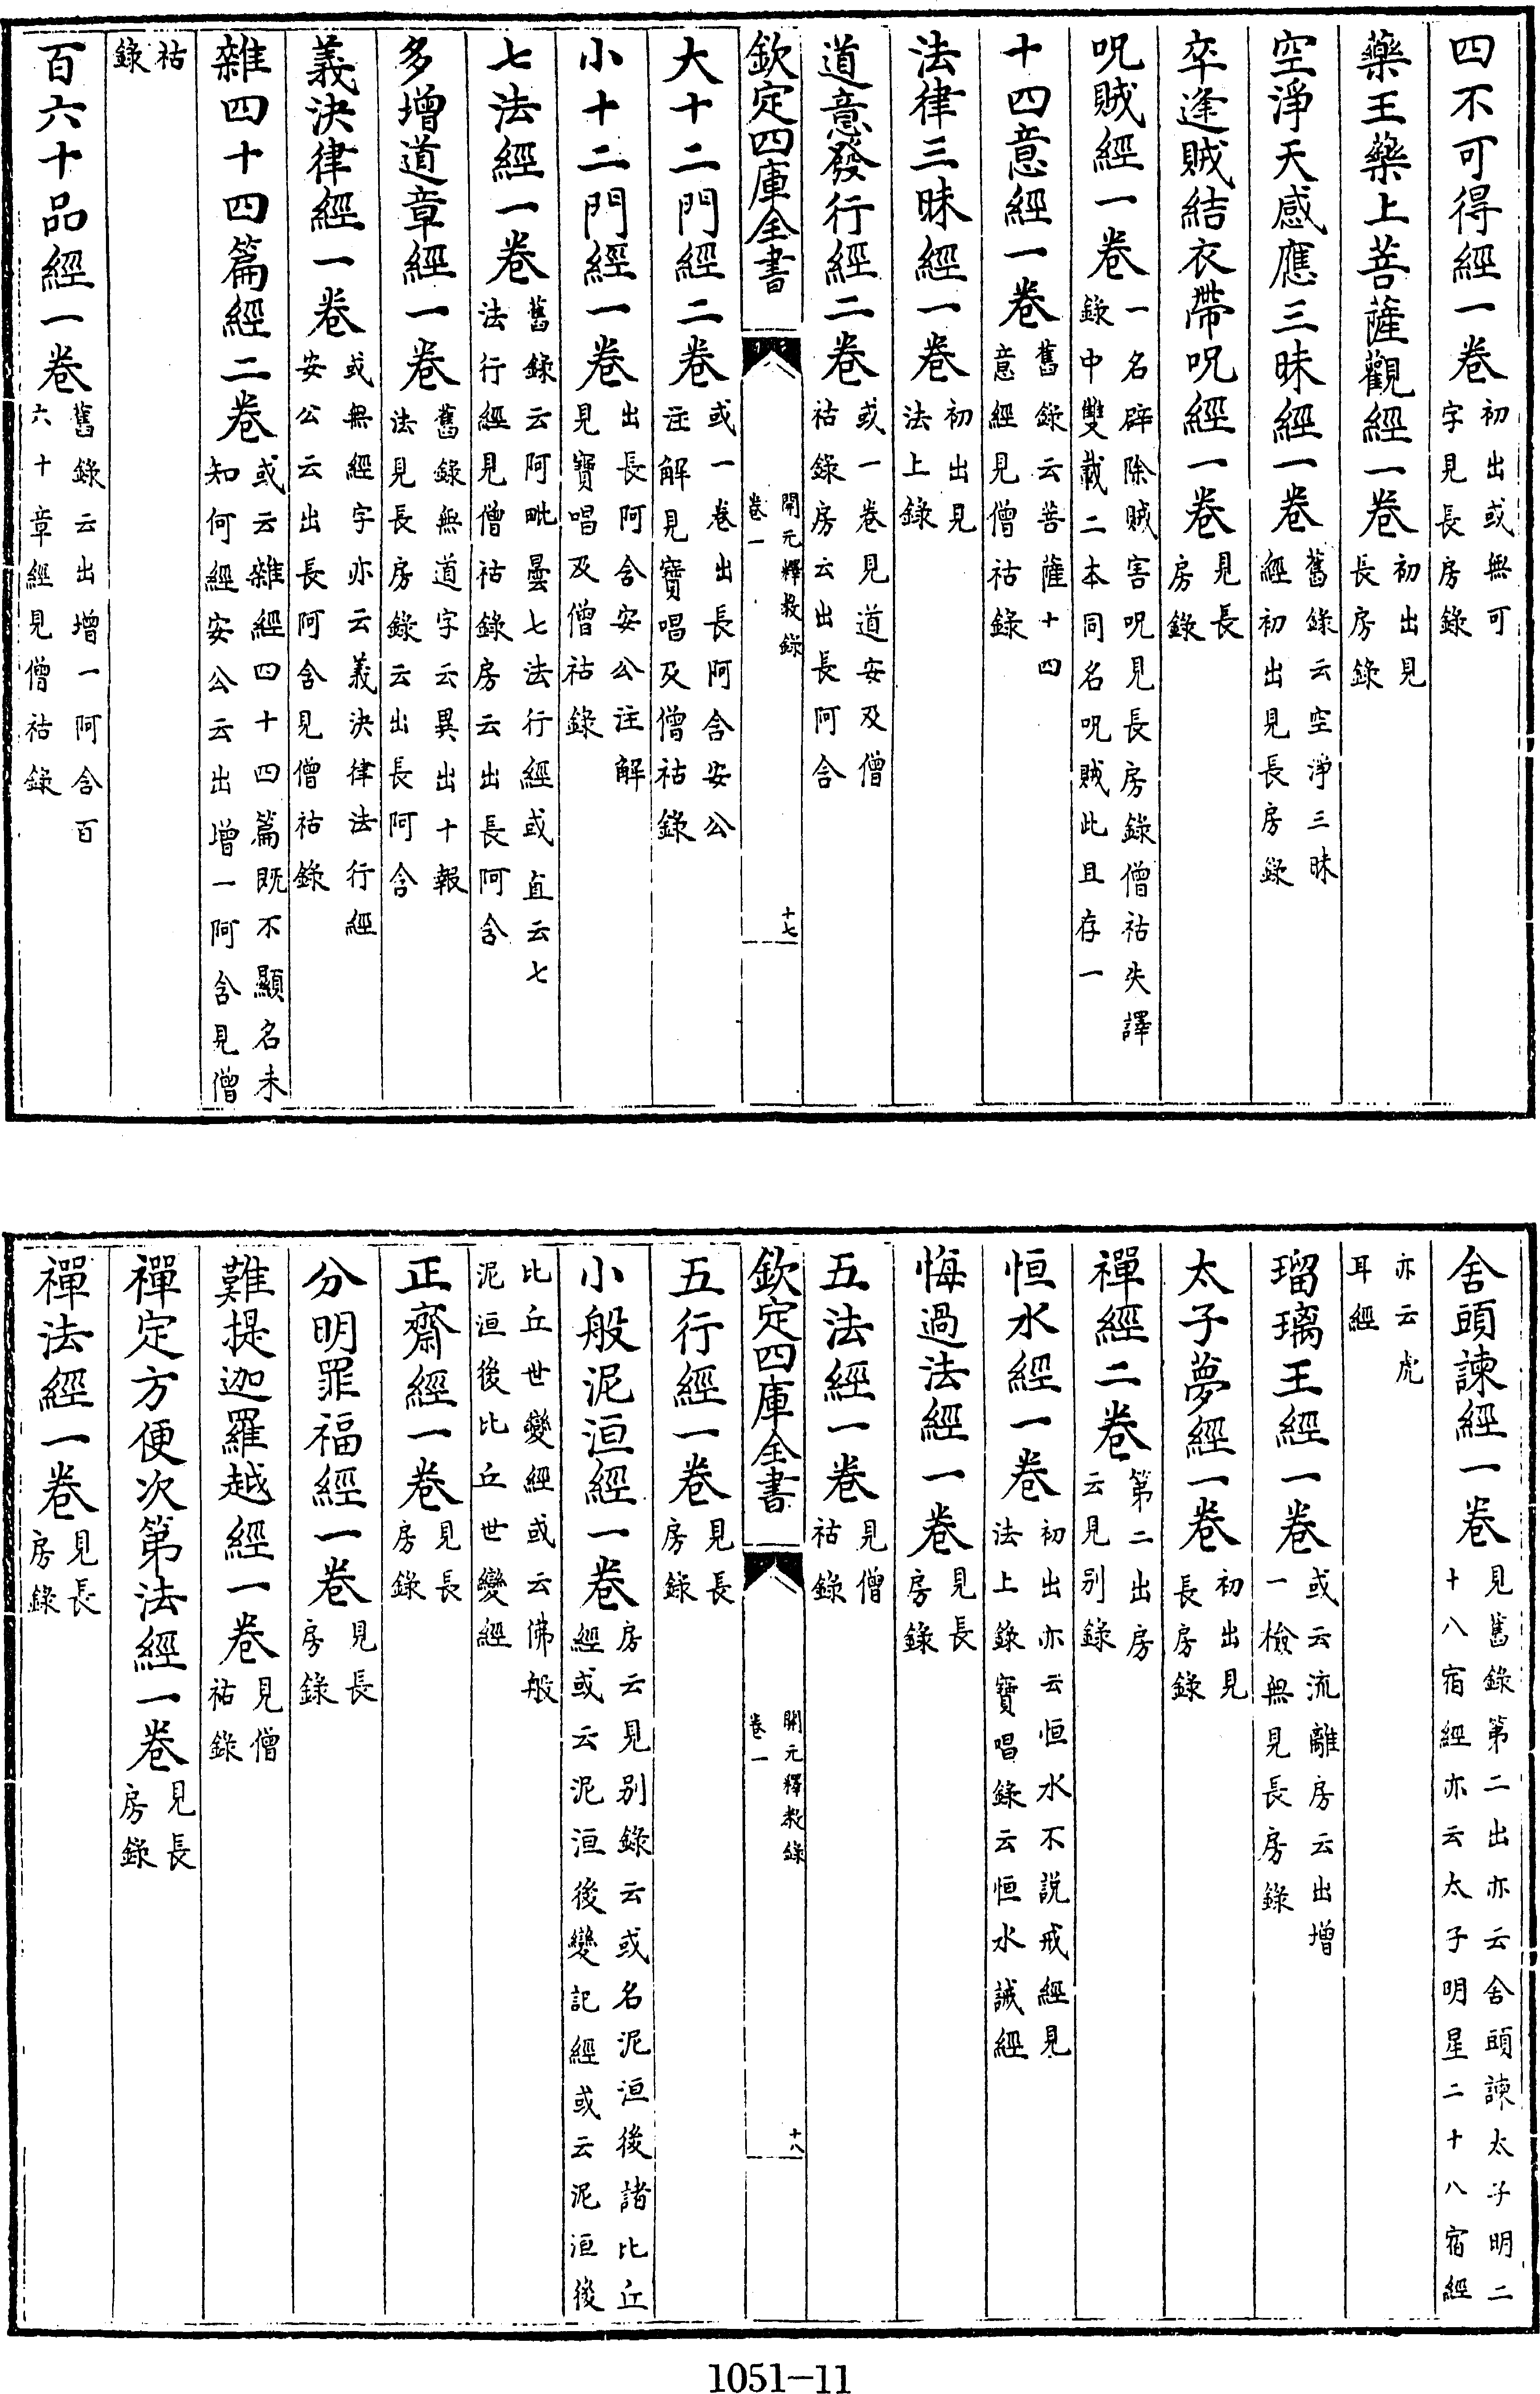 四不可得經一卷初出或無可字見長房錄
藥王藥上菩薩觀經一卷初出見長房錄
空淨天感應三昧經一卷舊錄云空淨三昧經初出見長房錄
卒逢賊結衣帶呪經一卷見長房錄
呪賊經一卷一名辟除賊害呪見長房錄僧祐失譯錄中雙載二本同名呪賊此且存一
十四意經一卷舊錄云菩薩十四意經見僧祐錄
法律三昧經一卷初出見法上錄
道意發行經二卷或一卷見道安及僧祐錄房云出長阿含
欽定四庫全書 開元釋教錄卷一 十七
大十二門經二卷或一卷出長阿含安公注解見寶唱及僧祐錄
小十二門經一卷出長阿含安公注解見寶唱及僧祐錄
七法經一卷舊錄云阿毗曇七法行經或直云七法行經見僧祐錄房云出長阿含
多增道章經一卷舊錄無道字云異出十報法見長房錄云出長阿含
義決律經一卷或無經字亦云義決律法行經安公云出長阿含見僧祐錄
雜四十四篇經二卷或云雜經四十四篇既不顯名未知何經安公云出增一阿含見僧
祐錄
百六十品經一卷舊錄云出增一阿含百六十章經見僧祐錄
舍頭諫經一卷見舊錄第二出亦云舍頭諫太子明二十八宿經亦云太子明星二十八宿經
亦云虎耳經
瑠璃王經一卷或云流離房云出增一檢無見長房錄
太子夢經一卷初出見長房錄
禪經二卷第二出房云見別錄
恒水經一卷初出亦云恒水不說戒經見法上錄寶唱錄云恒水誡經
悔過法經一卷見長房錄
五法經一卷見僧祐錄
欽定四庫全書 開元釋教錄卷一 十八
五行經一卷見長房錄
小般泥洹經一卷房云見別錄云或名泥洹後諸比丘經或云泥洹後變記經或云泥洹後
比丘世變經或云佛般泥洹後比丘世變經
正齋經一卷見長房錄
分明罪福經一卷見長房錄
難提迦羅越經一卷見僧祐錄
禪定方便次第法經一卷見長房錄
禪法經一卷見長房錄
1051-11